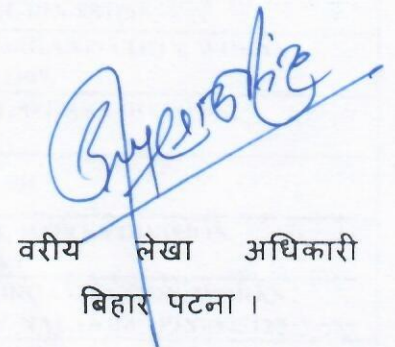 वरीय लेखा अधिकारी
बिहार पटना ।